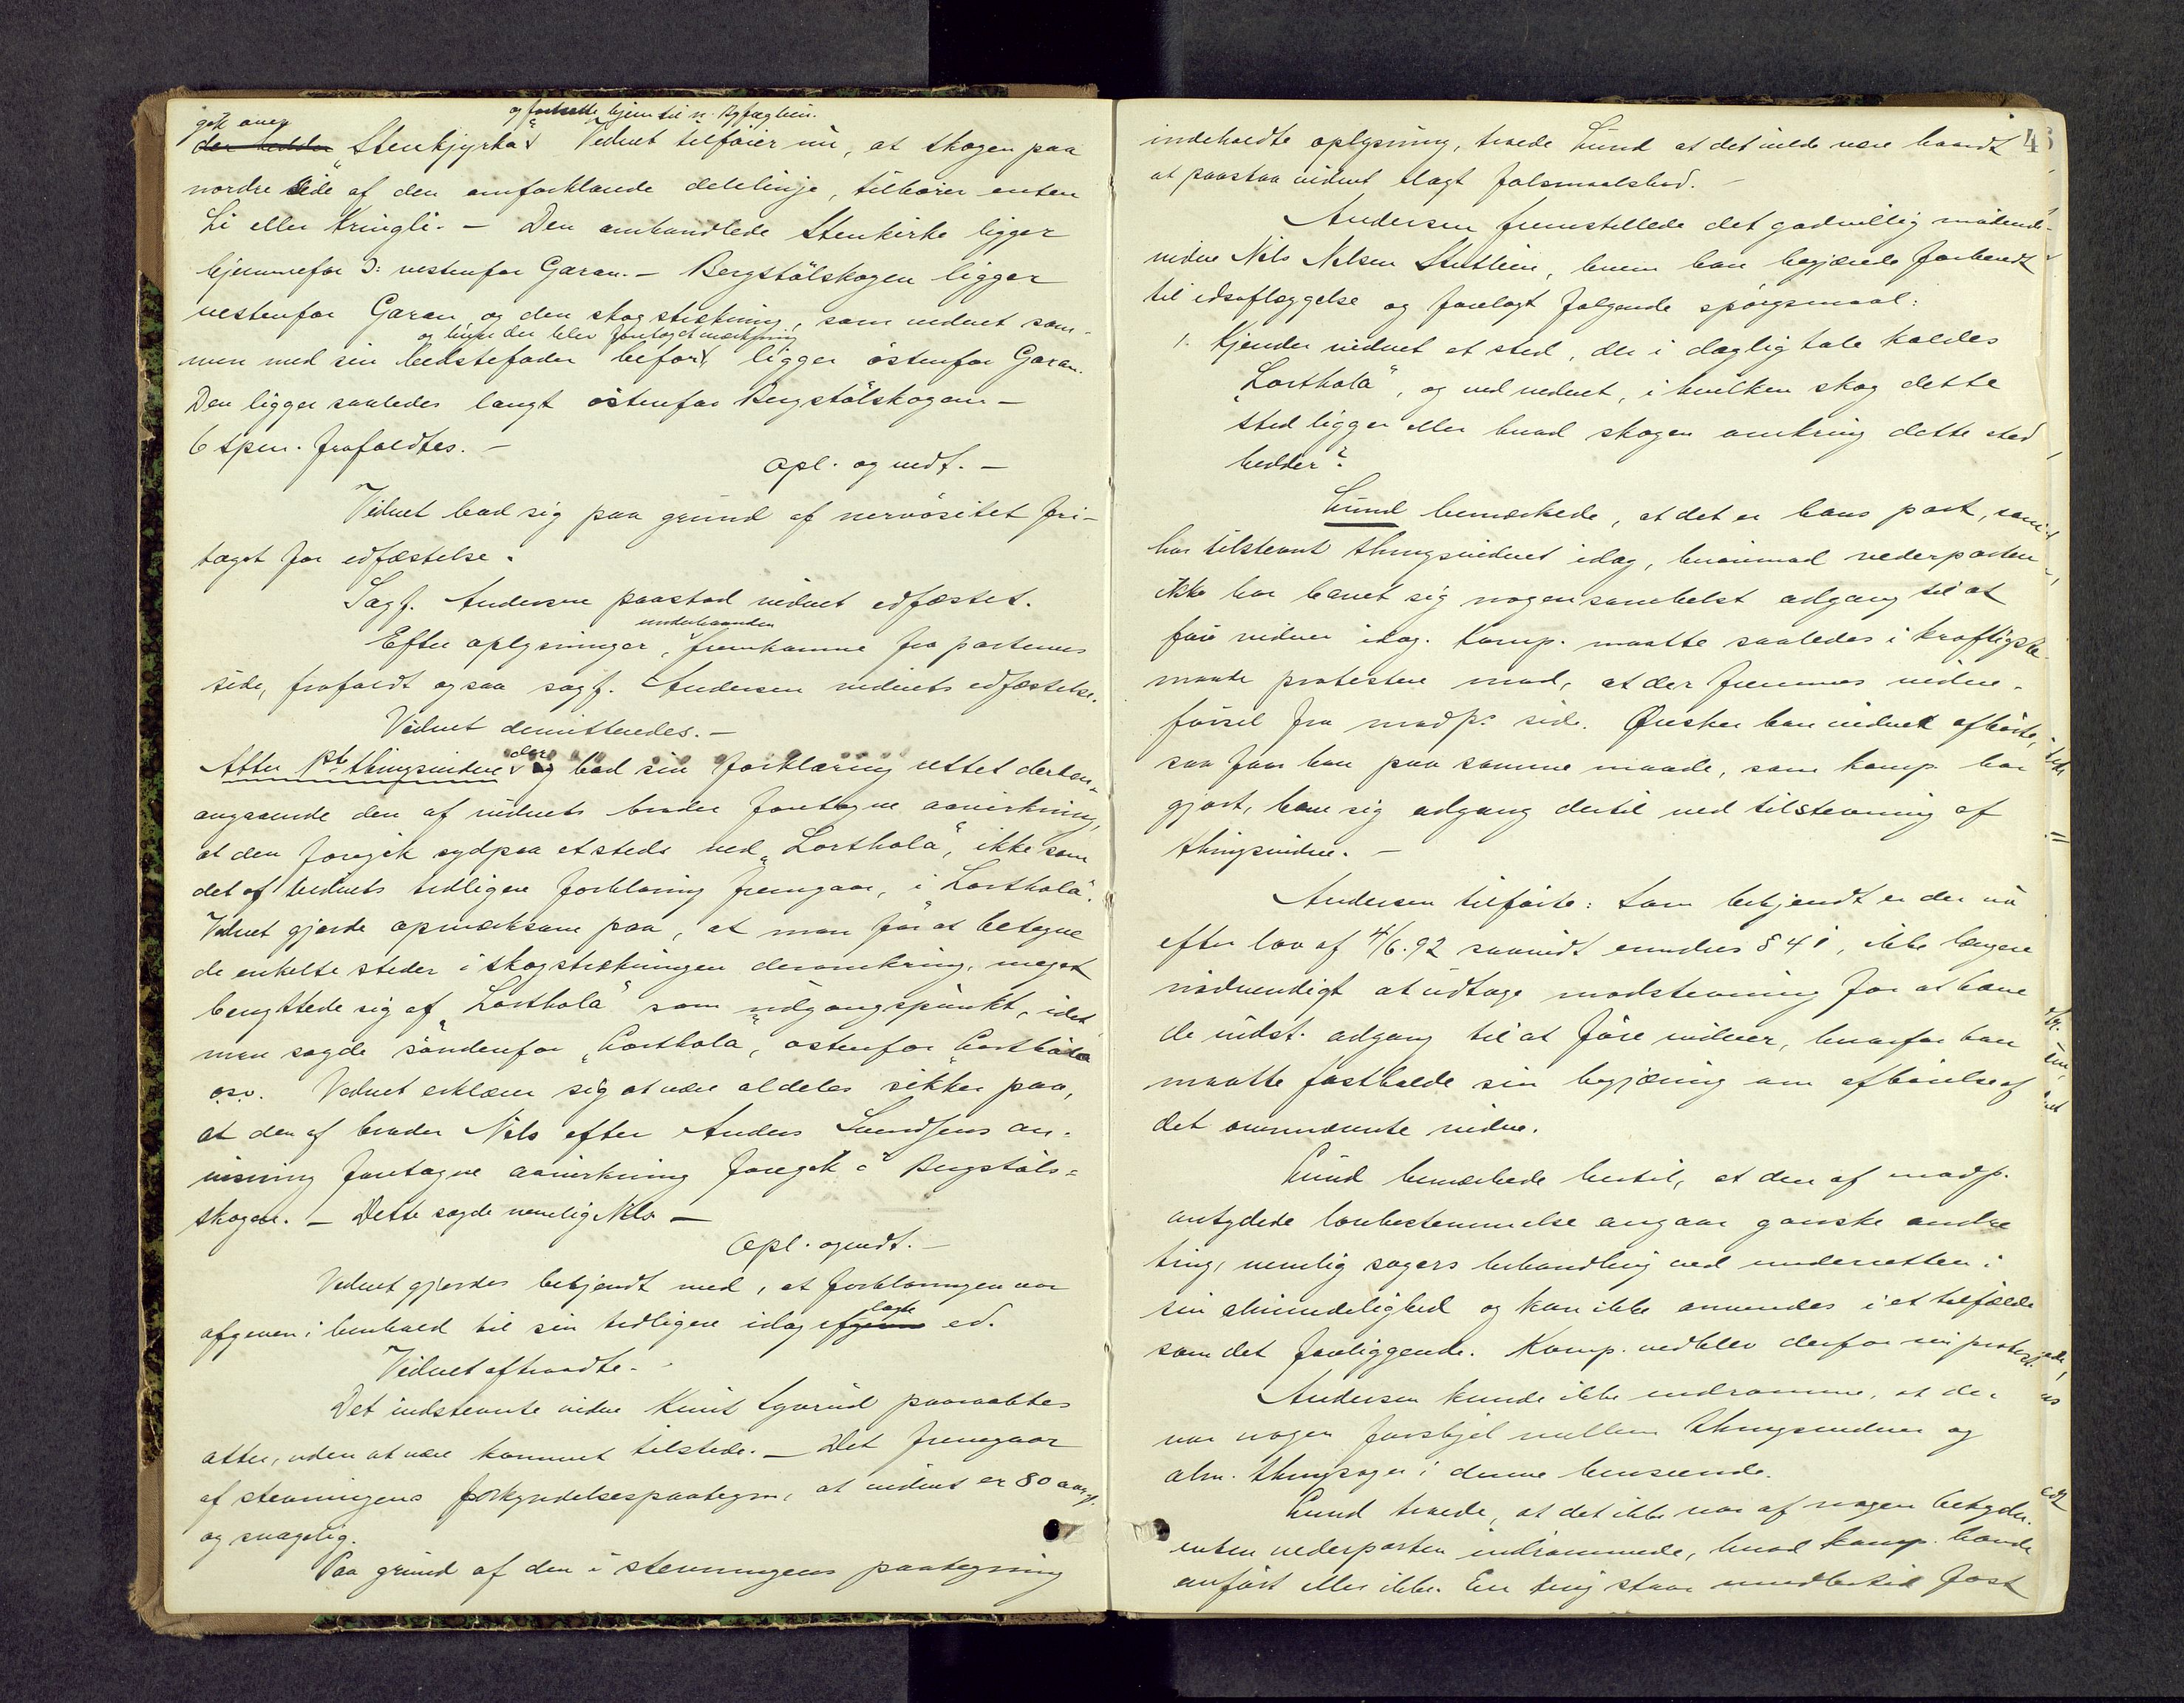 og fortsatte hjem til n. Bygfæghein.
gik over
der hedder „Stenkjyrka“. Vidnet tilføier nu, at skogen paa
nordre side af den omforklarede delelinje, tilhører enten
Li eller Kringli. — Den omhandlede Stenkirke ligger
hjemmefor ɔ: vestenfor Garan. — Bergstölskogen ligger
vestenfor Garan og den skogstrekning, som vidnet sam-
og hvor der blev foretaget mærkning
men med sin bedstefader befor, ligger østenfor Garan.
Den ligger saaledes langt østenfor Bergstölskogen —
6 spm. frafaldtes. —
Opl. og vedt. —
Vidnet bad sig paa grund af nervøsitet fri-
taget for edfæstelse.
Sagf. Andersen paastod vidnet edfæstet.
underhaanden
Efter oplysninger, fremkomne fra parternes
side, frafaldt ogsaa sagf. Andersen vidnets edfæstelse.
Vidnet demitteredes. —
Atter 1ste thingsvidne og bad sin forklaring rettet derhen,
angaaende den af vidnets broder foretagne aavirkning,
at den foregik sydpaa etsteds ved „Lorthola“, ikke som
det af vidnets tidligere forklaring fremgaar, i „Lorthola“.
Vidnet gjorde opmerksom paa, at man for at betegne
de enkelte steder i skogstrekningen deromkring, meget
benyttede sig af „Lorthola“ som udgangspunkt, idet
man sagde søndenfor „Lorthola“, østenfor „Lorthola“
osv. Vidnet erklærer sig at være aldeles sikker paa,
at den af broder Nils efter Anders Svendsens an-
visning foretagne aavirkning foregik i Bergstöls-
skogen. — Dette sagde nemlig Nils —
Opl. og vedt. —
Vidnet gjordes bekjendt med, at forklaringen var
lagte
afgiven i henhold til sin tidligere idag afgivne ed.
Vidnet aftraadte. —
Det indstevnte vidne Knut Lyvrud paaraabtes
atter, uden at være kommet tilstede. — Det fremgaar
af stevningens forkyndelsespaategn., at vidnet er 80 aar gl.
og svagelig.
Paa grund af den i stevningens paategning
43
indeholdte oplysning, troede Lund at det vilde være haardt
at paastaa vidnet ilagt falsmaalsbod. —
Andersen fremstillede det godvillig mødende
vidne Nils Nilsen Stutlien, hvem han begjærede forberedt
til edsaflæggelse og forelagt følgende spørgsmaal:
1. Kjender vidnet et sted, der i daglig tale kaldes
„Lorthola“, og ved vidnet, i hvilken skog dette
sted ligger eller hvad skogen omkring dette sted
hedder?
Lund bemerkede, at det er hans part, som
har tilstevnt thingsvidnet idag, hvorimod vederparten
ikke har banet sig nogensomhelst adgang til at
føre vidner idag. Komp. maatte saaledes i kraftigste
maade protestere mod, at der fremmes vidne-
førsel fra modp.s side. Ønsker han vidnet afhørt,
saa faar han paa samme maade, som komp. har
gjort, bane sig adgang dertil ved tilstevning af
thingsvidne. —
Andersen tilførte: Som bekjendt er der nu
efter lov af 4/6.92 saavidt erindres § 41, ikke længere
nødvendigt at udtage modstevning for at have
de indst. adgang til at føre vidner, hvorfor han
maatte fastholde sin begjæring om afhørelse af
det omnævnte vidne.
Lund bemerkede hertil, at den af modp.
antydede lovbestemmelse angaar ganske andre
ting, nemlig sagers behandling ved underretten i
sin almindelighed og kan ikke anvendes i et tilfælde
som det foreliggende. Komp. vedblev derfor sin protest.
Andersen kunde ikke indrømme, at der
var nogen forskjel mellem thingsvidner og
alm. thingsager i denne henseende.
Lund troede, at det ikke var af nogen betydn.
enten vederparten indrømmede, hvad komp. havde
anført eller ikke. En ting staar imidlertid fast